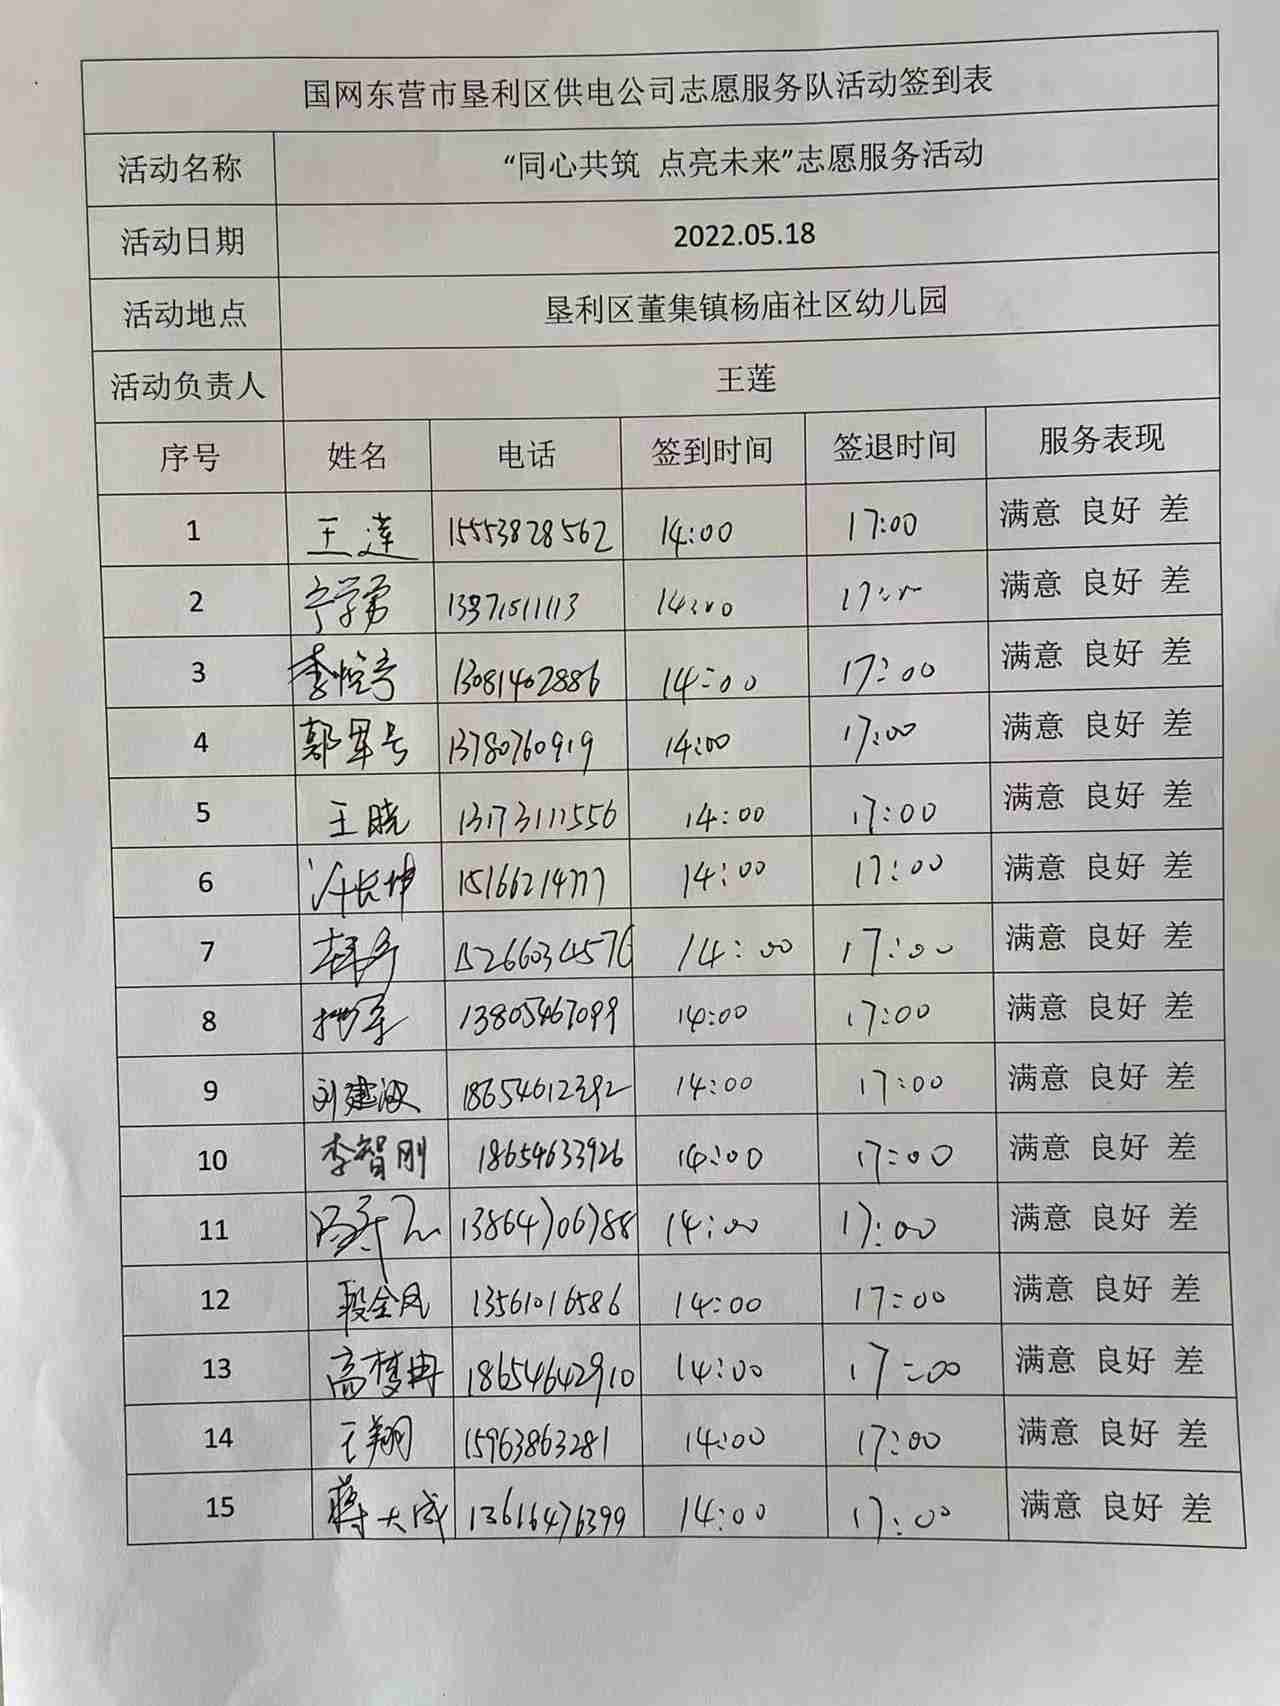 国网东营市垦利区供电公司志愿服务队活动签到表
活动名称 “同心共筑 点亮未来”志愿服务活动
活动日期 2022.05.18
活动地点 垦利区董集镇杨庙社区幼儿园
活动负责人 王莲
序号 姓名 电话 签到时间 签退时间 服务表现
1 王莲 15553828562 14:00 17:00 满意 良好 差
2 14:00 17:00 满意 良好 差
3 13081402886 14:00 17:00 满意 良好 差
4 13780760919 14:00 17:00 满意 良好 差
5 王晓 13173111556 14:00 17:00 满意 良好 差
6 许长坤 15166214777 14:00 17:00 满意 良好 差
7 15266034576 14:00 17:00 满意 良好 差
8 13805467099 14:00 17:00 满意 良好 差
9 刘建波 18654612392 14:00 17:00 满意 良好 差
10 李智刚 18654633926 14:00 17:00 满意 良好 差
11 13864706788 14:00 17:00 满意 良好 差
12 段金凤 13561016586 14:00 17:00 满意 良好 差
13 高梦冉 18654642910 14:00 17:00 满意 良好 差
14 王翔 15963863281 14:00 17:00 满意 良好 差
15 蒋大成 13616476399 14:00 17:00 满意 良好 差